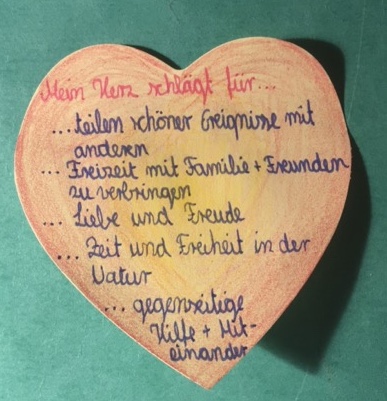 Mein Herz schlägt für...
...teilen schöner Ereignisse mit
anderen
... Freizeit mit Familie + Freunden
zu verbringen
... Liebe und Freude
... Zeit und Freiheit in der
Natur
... gegenseitige
Hilfe + Mit-
einander